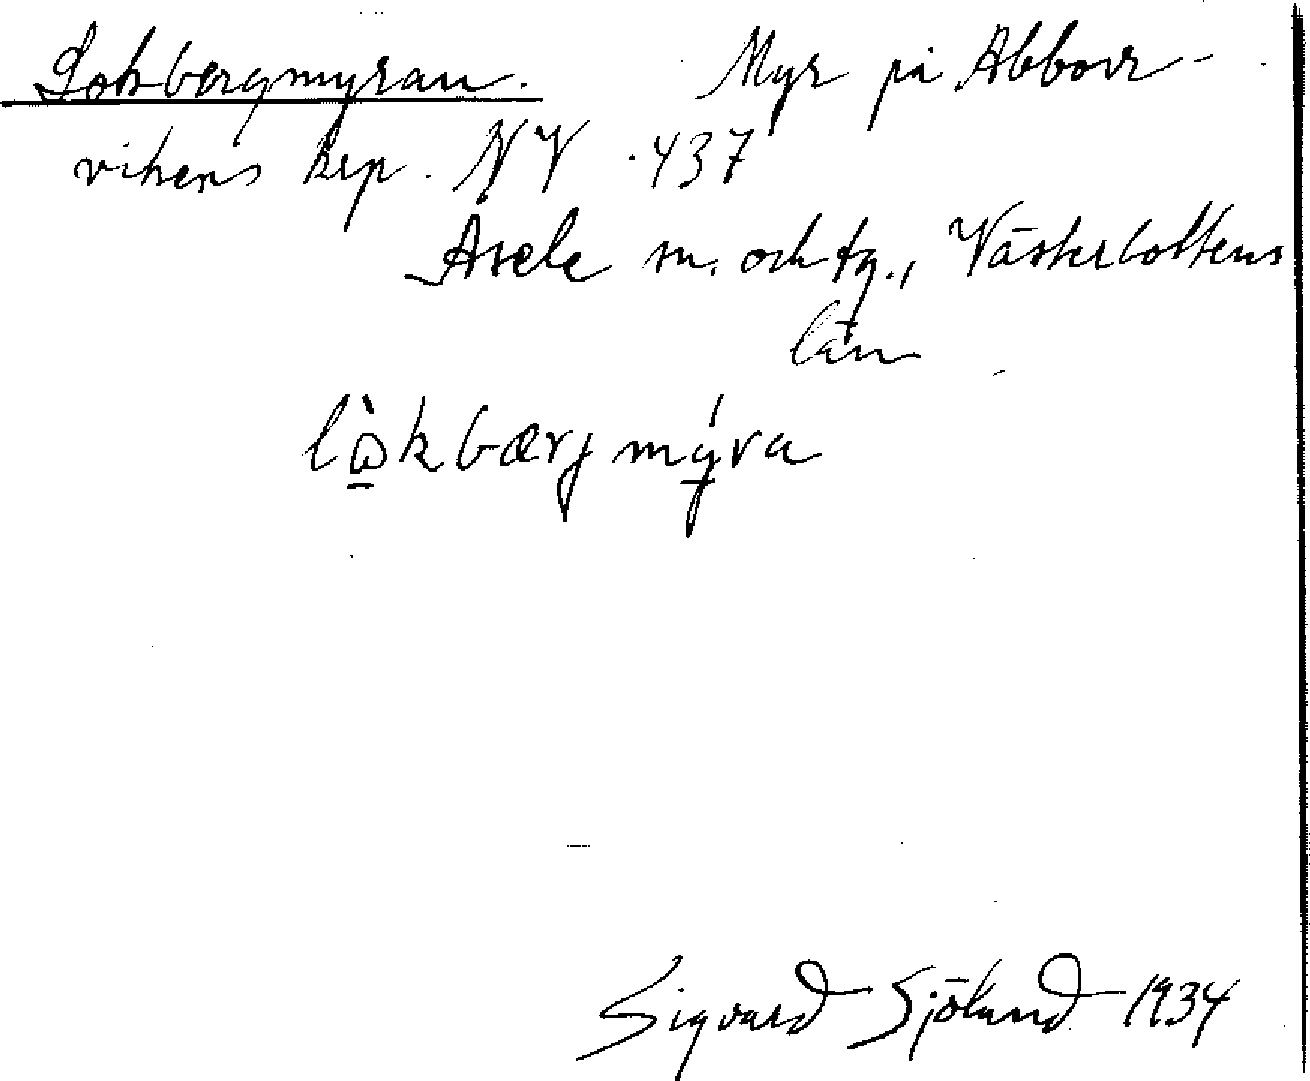 Lokbergmyran. Myr på Abborr-
vikens krp. NV .437
Åsele sn. och tg., Västerbottens
län
lòkbærjmýra
Sigvard Sjölund 1934